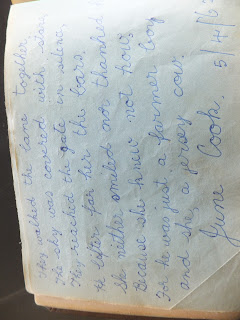 They walked the lane together,
The sky was covered with stars,
They reached the gate in silence,
He lifted for her the bars.
She neither smiled nor thanked him
Because she knew not how,
For he was just a farmer boy
and she a jersey cow.
June Cook. 5/4/63